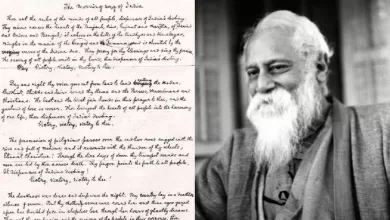 The Morning Song of India
Thou art the ruler of the minds of all people, dispenser of India's destiny.
Thy name rouses the hearts of the Punjab, Sind, Gujarat and Maratha, of Dravida
and Orissa and Bengal; it echoes in the hills of the Vindhyas and Himalayas,
mingles in the music of the and is chanted by the
waves of the Indian sea. They pray for thy blessings and sing thy praise.
The saving of all people waits in thy hand, thou dispenser of India's destiny.
Victory, victory, victory to thee.
Day and night thy voice goes out from land to land the Hindus,
Buddhists, Sikhs and Jains round thy throne and the Parsees, Mussalmans and
Christians. The East and the West join hands in their prayer to thee, and the
garland of love is woven. Thou bringest the hearts of all people into the harmony
of one life, thou dispenser of India's destiny.
Victory, victory, victory to thee.
The procession of pilgrims passes over the endless road rugged with the
rise and fall of nations; and it resounds with the thunder of thy wheels,
Eternal Charioteer! Through the dire days of doom thy trumpet sounds and
men are led by thee across death. Thy finger points the path to all people,
Oh dispenser of India's destiny!
Victory, victory, victory to thee.
The darkness was dense and deep was the night. My country lay in a deathlike
silence of swoon. But thy mother arms were round her and thine eyes gazed
upon her troubled face in sleepless love through her hours of ghastly dreams.